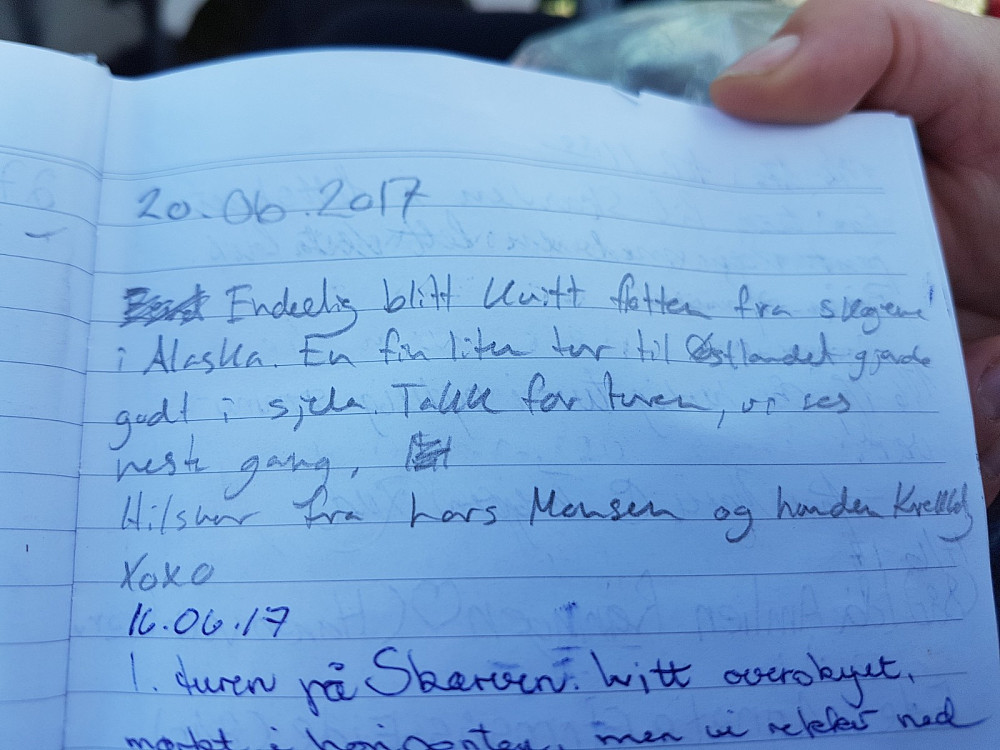 20.06.2017
Endeelig blitt kvitt flotten fra skogene
i Alaska. En fin liten tur til Østlandet gjorde
godt i sjela. Takk for turen, vi ses
neste gang,
Hilsner fra Lars Monsen og hunden
XOXO
16.06.17
1. turen på Skarven. Litt overskyet,
mørkt i horisonten, men vi rekker ned